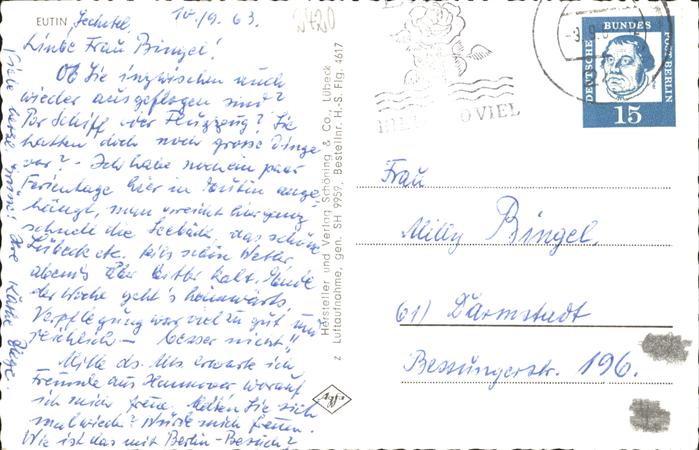 EUTIN
10./9. 63.
2420
Liebe Frau Bingel!
Ob Sie inzwischen auch
wieder ausgeflogen sind?
Per Schiff oder Flugzeug? Sie
hatten doch noch grosse Dinge
vor? - Ich habe noch ein paar
Ferientage hier in Eutin ange-
hängt, man erreicht hier ganz
schnell die Seebäder, das schöne
Lübeck etc. bei schön Wetter
abends aber bitter kalt. Ende
der Woche geht's heimwärts.
Verpflegung war viel zu gut und
reichlich - besser nicht"
Mitte ds. Mts. erwarte ich
Freunde aus Hannover worauf
ich mich freue. Melden Sie sich
mal wieder? Würde mich freuen.
Wie ist das mit Berlin-Besuch?
Viele Grüsse immer Ihre Käthe
Hersteller und Verlag Schöning & Co., Lübeck
2 Luftaufnahme, gen. SH 9959, Bestellnr. H.-S. Fig. 4617
Agfa
VIEL
DEUTSCHE BUNDES POST BERLIN
15
Frau
Milly Bingel.
61) Darmstadt
Bessungerstr. 196.